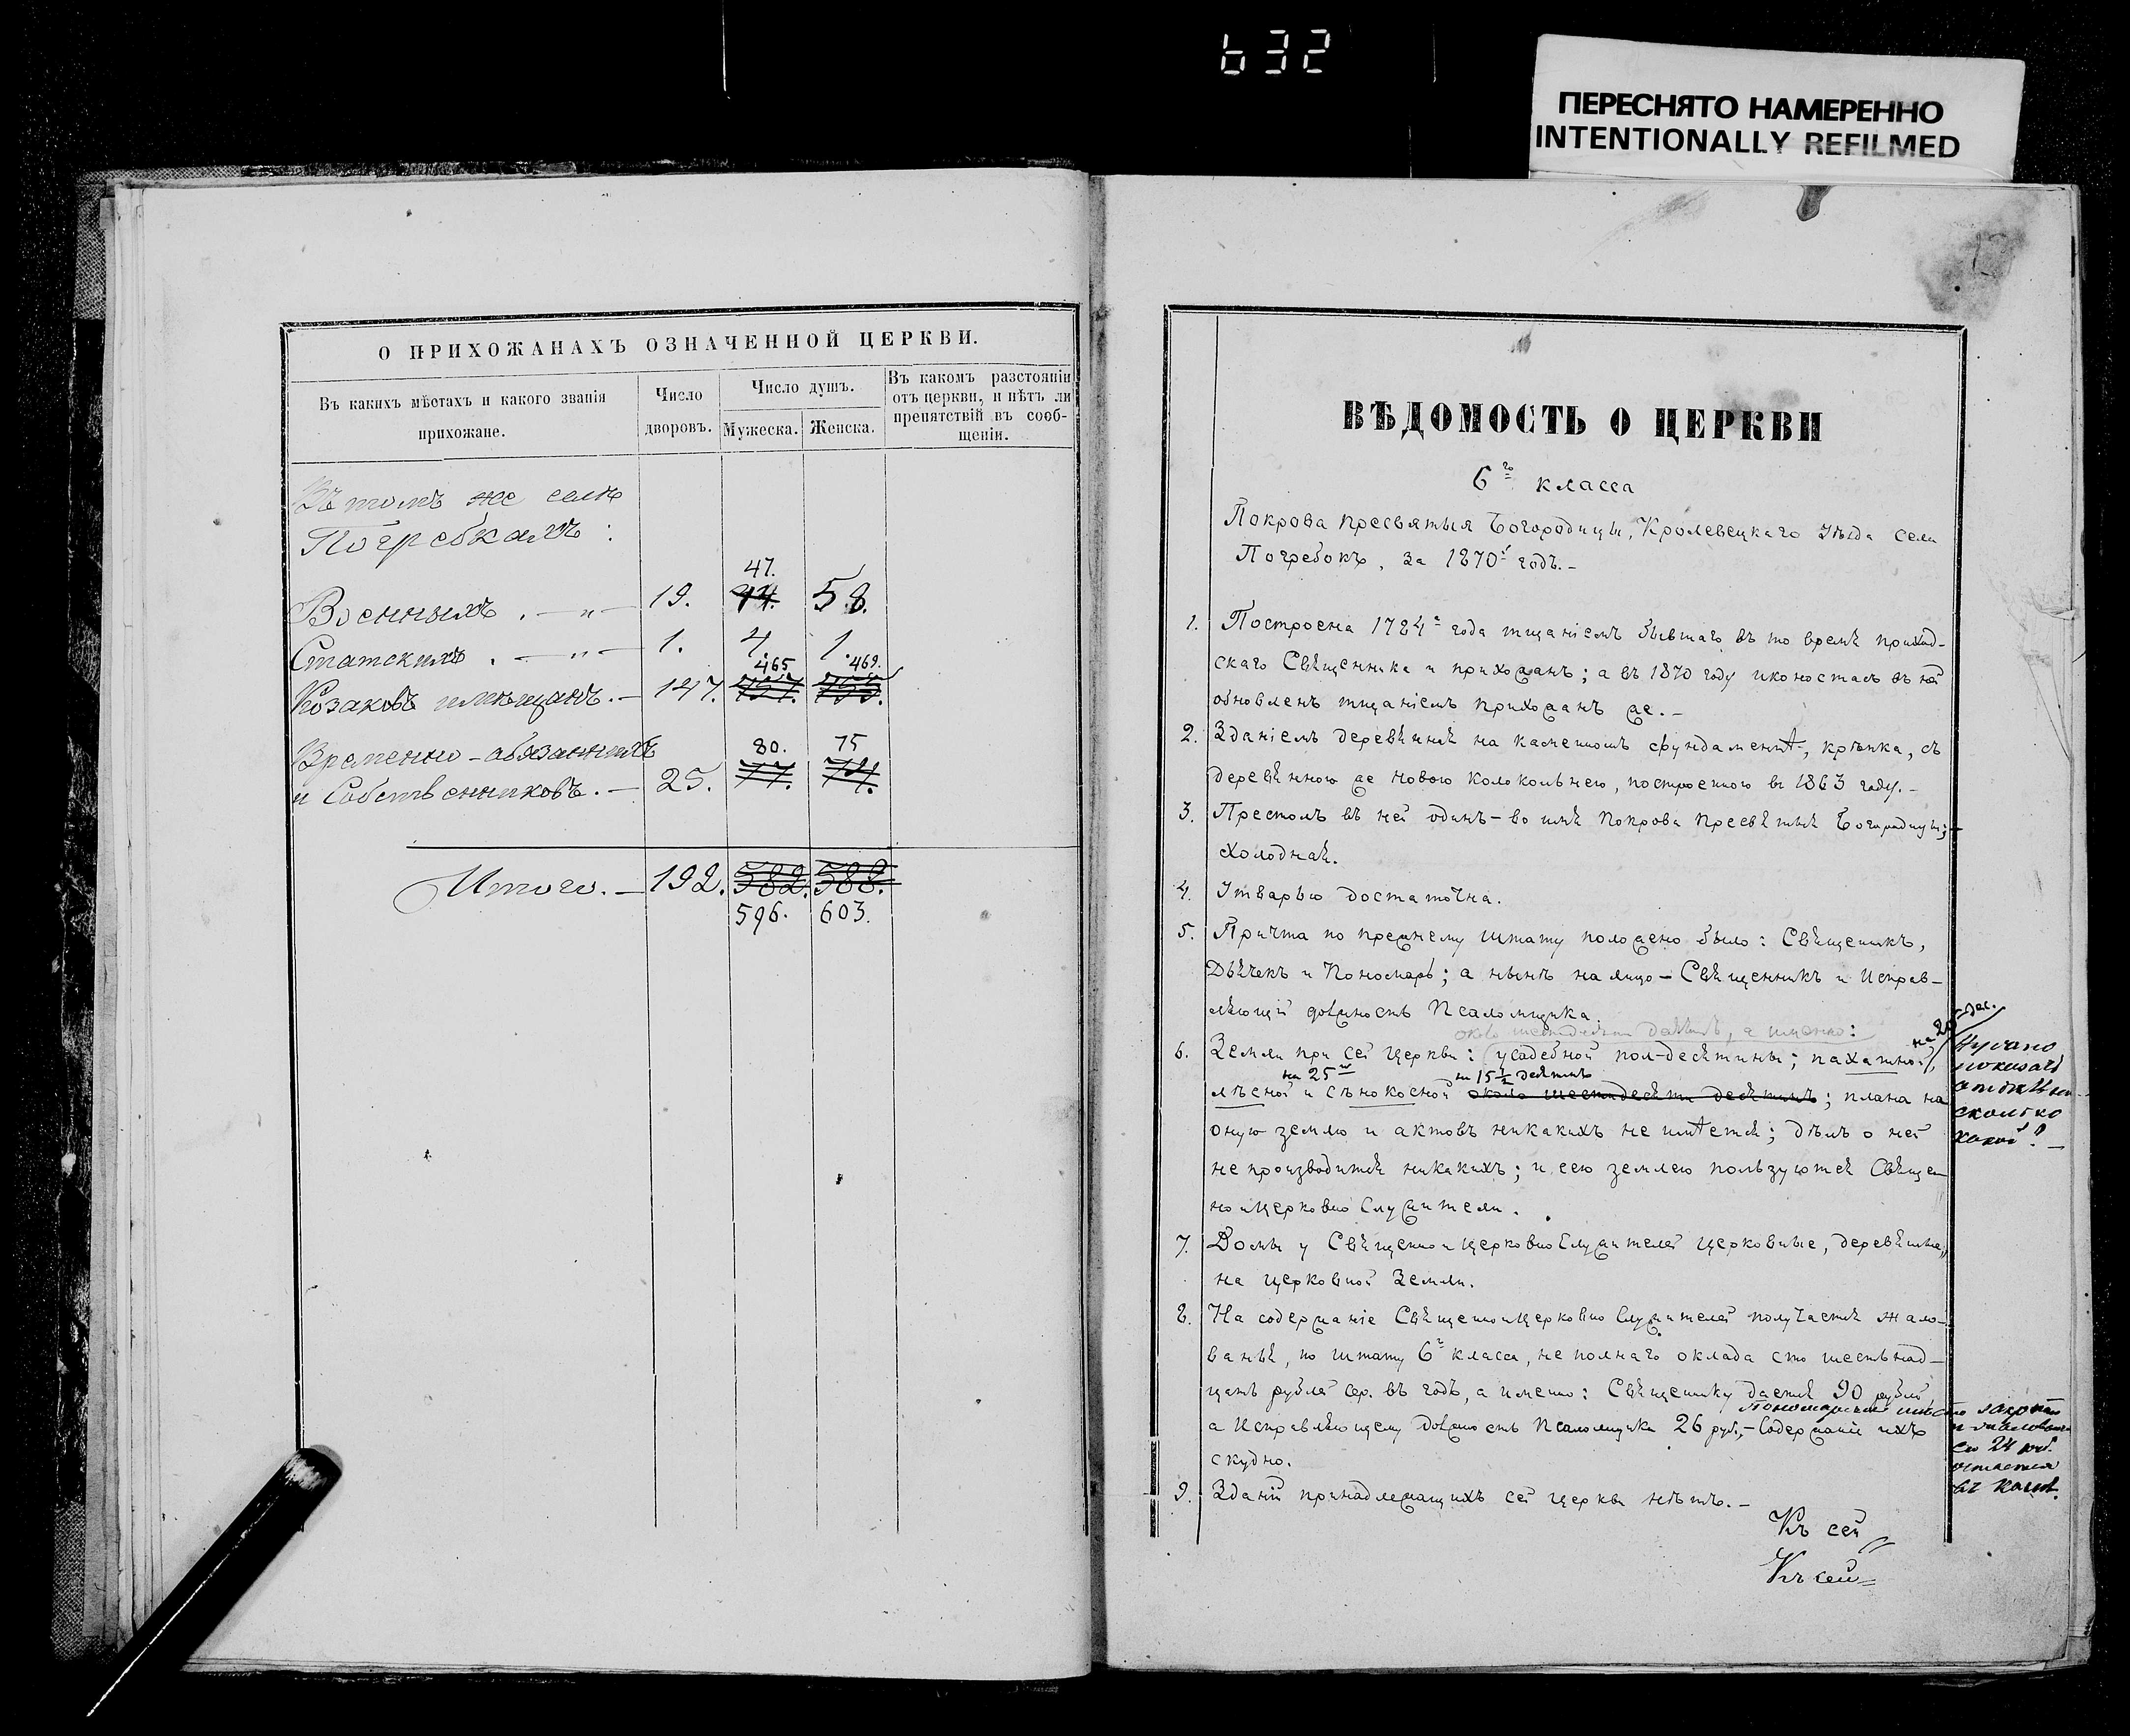 632
ПЕРЕСНЯТО НАМЕРЕННО
INTENTIONALLY REFILMED
О ПРИХОЖАНАХЪ ОЗНАЧЕННОЙ ЦЕРКВИ.
Въ какихъ мѣстахъ и какого званія прихожане.
Число дворовъ.
Число душъ.
Мужеска. Женска.
Въ какомъ разстояніи
отъ церкви, и нѣтъ ли
препятствій въ сооб-
щеніи.
Въ томъ же селѣ
Погребкахъ:
47.
Военныхъ . — „ — 19. 44. 58.
Статскихъ . — „ — 1. 4. 1.
465 469.
Козаковъ и мѣщанъ. — 147.
Временно-обязанныхъ 80. 75
и Собственниковъ. — 25. 77. 74.
Итого. — 192. 582. 588.
596. 603.
ВѢДОМОСТЬ О ЦЕРКВИ
6го класса
Покрова Пресвятыя Богородицы, Кролевецкаго Уѣзда села
Погребокъ, за 1870й годъ.—
1. Построена 1724 года тщаніемъ бывшаго въ то время приход-
скаго Священника и прихожанъ; а въ 1870 году иконостасъ въ ней
обновленъ тщаніемъ прихожанъ же.—
2. Зданіемъ деревянная на каменномъ фундаментѣ, крѣпка, съ
деревянною же новою колокольнею, построенною въ 1863 году.—
3. Престолъ въ ней одинъ – во имя Покрова Пресвятыя Богородицы;
холодная.
4. Утварью достаточна.
5. Причта по прежнему штату положено было: Священникъ,
Дьячекъ и Пономарь; а нынѣ на лицо – Священникъ и Исправ-
ляющій должность Псаломщика.
около шестидесяти десятинъ, а именно:
на 20 дес.
6. Земли при сей церкви: усадебной пол-десятины; пахатной,
на 25 на 15½ десятинъ
лѣсной и сѣнокосной около шестидесяти десятинъ; плана на
оную землю и актовъ никакихъ не имѣется; дѣлъ о ней
не производится никакихъ; и сею землею пользуются Священ
но и Церковно Служители.
Нужно
показать
сколько
какой? —
7. Домы у Священно и Церковно Служителей церковные, деревянные,
на церковной Земли.
8. На содержаніе Священно и Церковно Служителей получается жало-
ванья, по штату 6 класса, не полнаго оклада сто шестьнад-
цать рублей сер. въ годъ, а именно: Священнику дается 90 рублей,
Пономарское мѣсто закрыто
а Исправляющему должность Псаломщика 26 руб.,— Содержаніе ихъ
скудно.
и жалованье
его 24 руб.
остается
въ казнѣ.
9. Зданій принадлежащихъ сей церкви нѣтъ.—
Къ сей
Къ сей